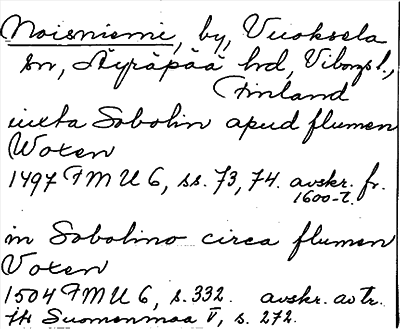 Noisniemi, by, Vuoksela
sn, Äyräpää hd, Viborgs l.,
Finland
iuxta Sobolin apud flumen
Woxen
1497 FMU 6, ss. 73, 74. avskr. fr.
1600-t.
in Sobolino circa flumen
Voxen
1504 FMU 6, s. 332. avskr. av tr.
Jfr Suomenmaa V, s. 272.